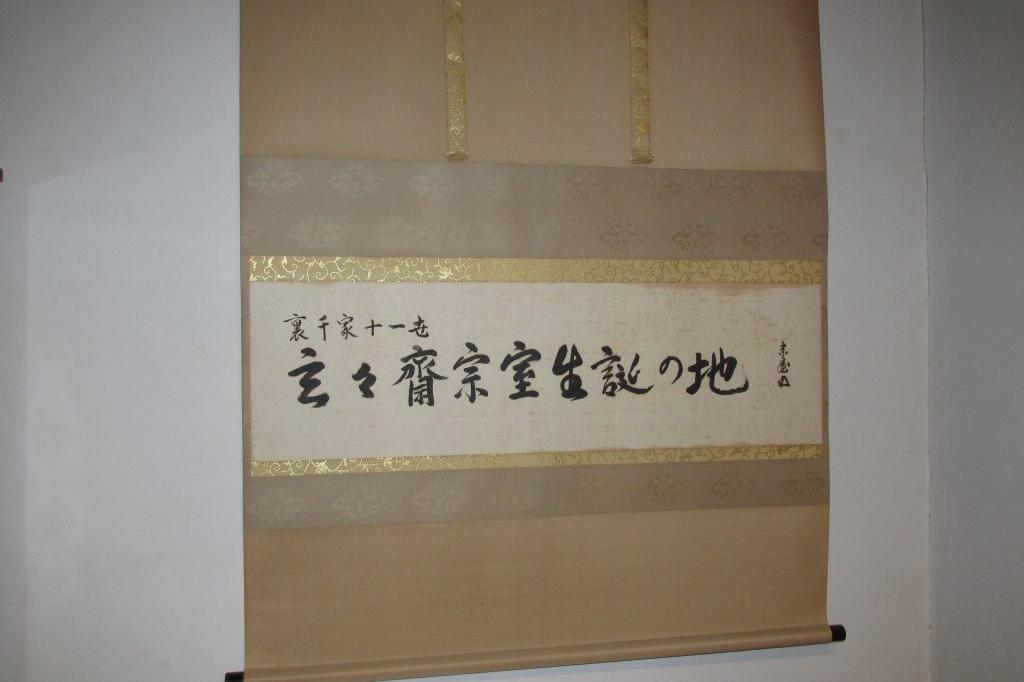 裏千家十一世
玄々齋宗室生誕の地